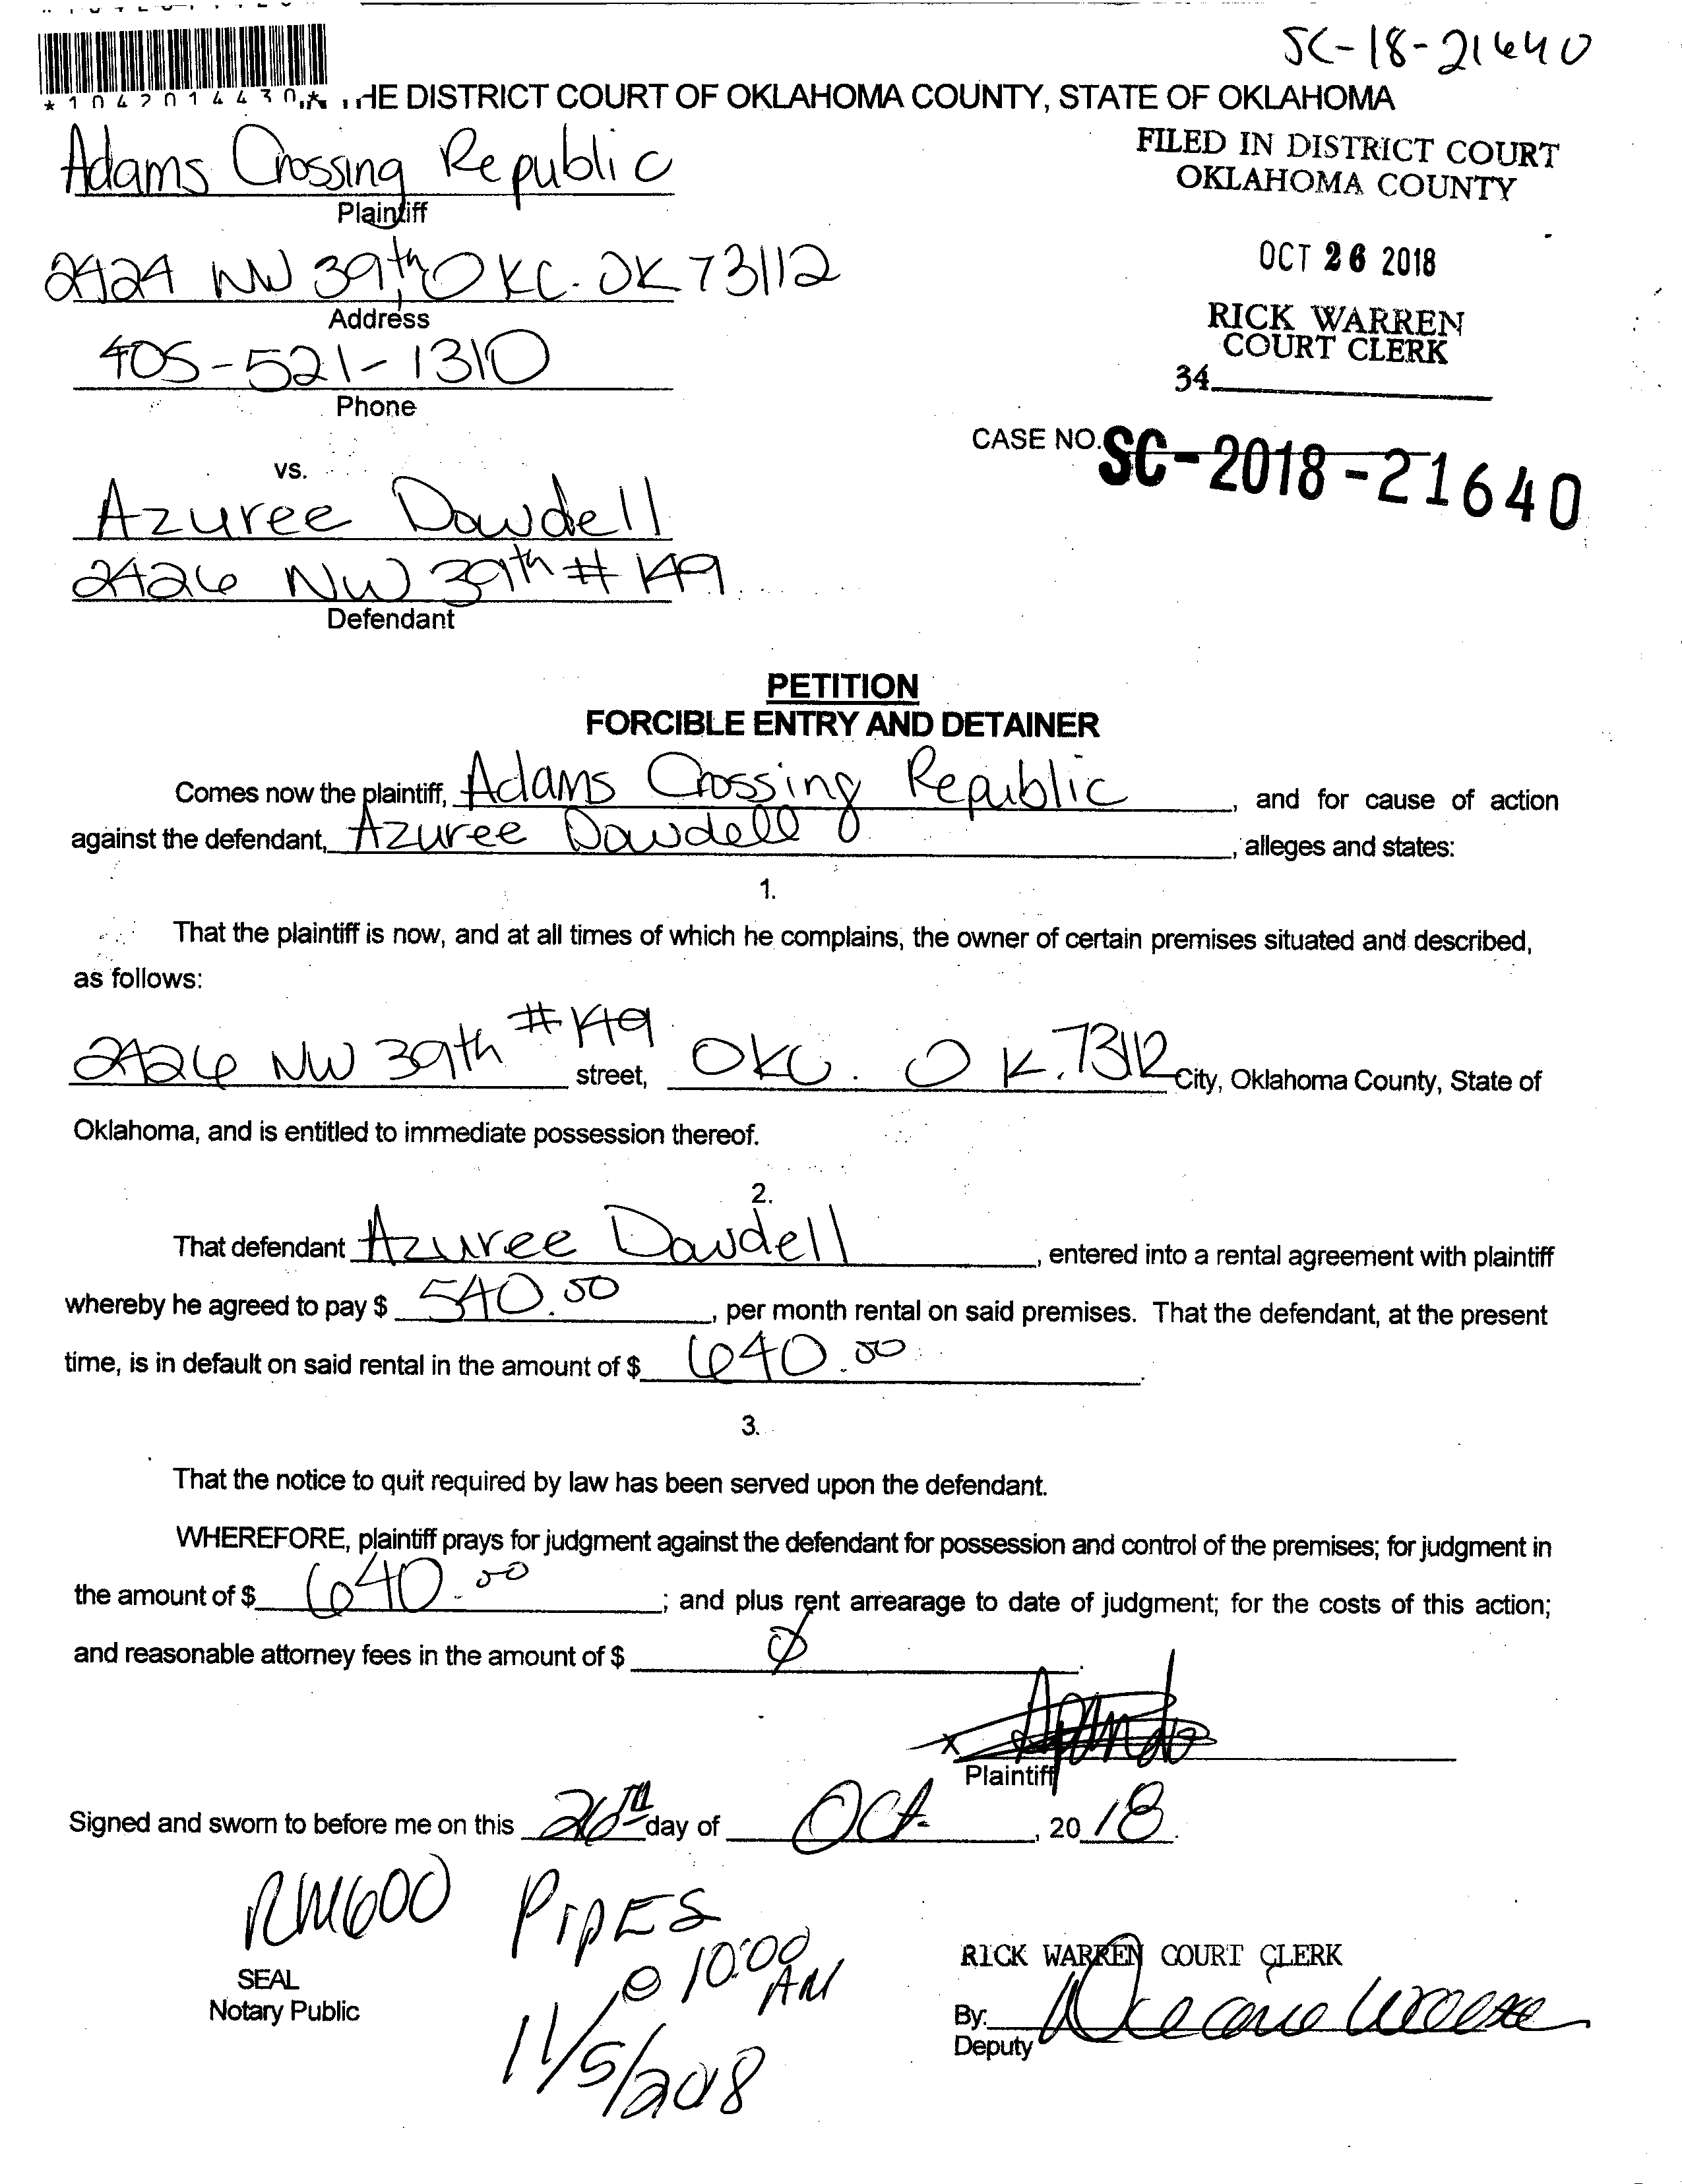 SC-18-21640
*1042014430* HE DISTRICT COURT OF OKLAHOMA COUNTY, STATE OF OKLAHOMA
Adams Crossing Republic
Plaintiff
FILED IN DISTRICT COURT
OKLAHOMA COUNTY
OCT 26 2018
RICK WARREN
COURT CLERK
34
2424 NW 39th OKC. OK 73112
Address
405-521-1310
Phone
CASE NO. SC-2018-21640
vs.
Azuree Dowdell
2426 NW 39th #149
Defendant
PETITION
FORCIBLE ENTRY AND DETAINER
Comes now the plaintiff, Adams Crossing Republic, and for cause of action
against the defendant, Azuree Dowdell, alleges and states:
1.
That the plaintiff is now, and at all times of which he complains, the owner of certain premises situated and described,
as follows:
2426 NW 39th #149 street, OKC. OK. 73112 City, Oklahoma County, State of
Oklahoma, and is entitled to immediate possession thereof.
2.
That defendant Azuree Dowdell, entered into a rental agreement with plaintiff
whereby he agreed to pay $ 540.00, per month rental on said premises. That the defendant, at the present
time, is in default on said rental in the amount of $ 640.00.
3.
That the notice to quit required by law has been served upon the defendant.
WHEREFORE, plaintiff prays for judgment against the defendant for possession and control of the premises; for judgment in
the amount of $ 640.00; and plus rent arrearage to date of judgment; for the costs of this action;
and reasonable attorney fees in the amount of $ Ø.
x
Plaintiff
Signed and sworn to before me on this 26TH day of Oct., 2018.
RM600 PIPES
@ 10:00 AM
11/5/2018
SEAL
Notary Public
RICK WARREN COURT CLERK
By:
Deputy